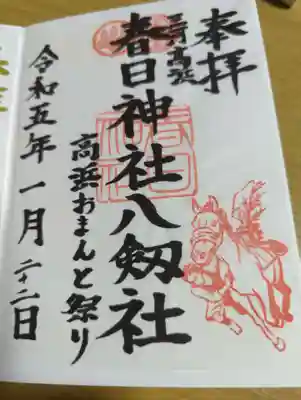 奉拝
三河・高浜
春日神社八劔社
高浜おまんと祭り
令和五年一月二十二日